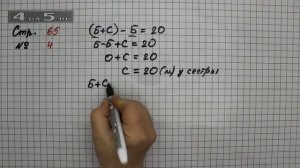 4AU5.RU
Стр. 65
№ 4
(Б+С) - Б = 20
Б-Б+С = 20
0+С = 20
С = 20 (м) у сестры
Б+С